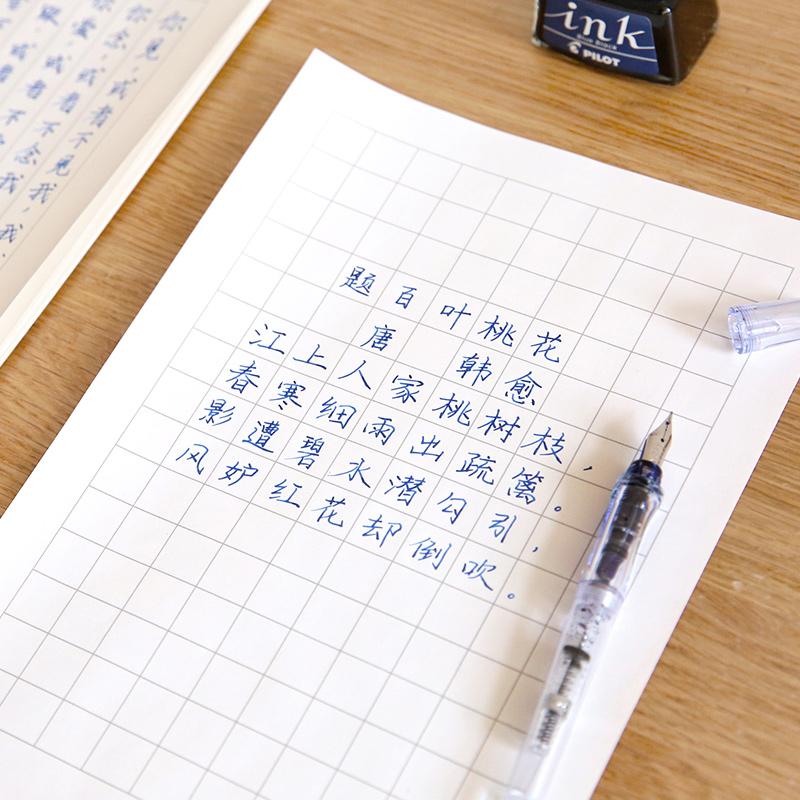 ink
Blue Black
PILOT
你见，或者不见我，我
你念，或者不念我，
爱，或者不
题百叶桃花
唐 韩愈
江上人家桃树枝，
春寒细雨出疏篱。
影遭碧水潜勾引，
风妒红花却倒吹。